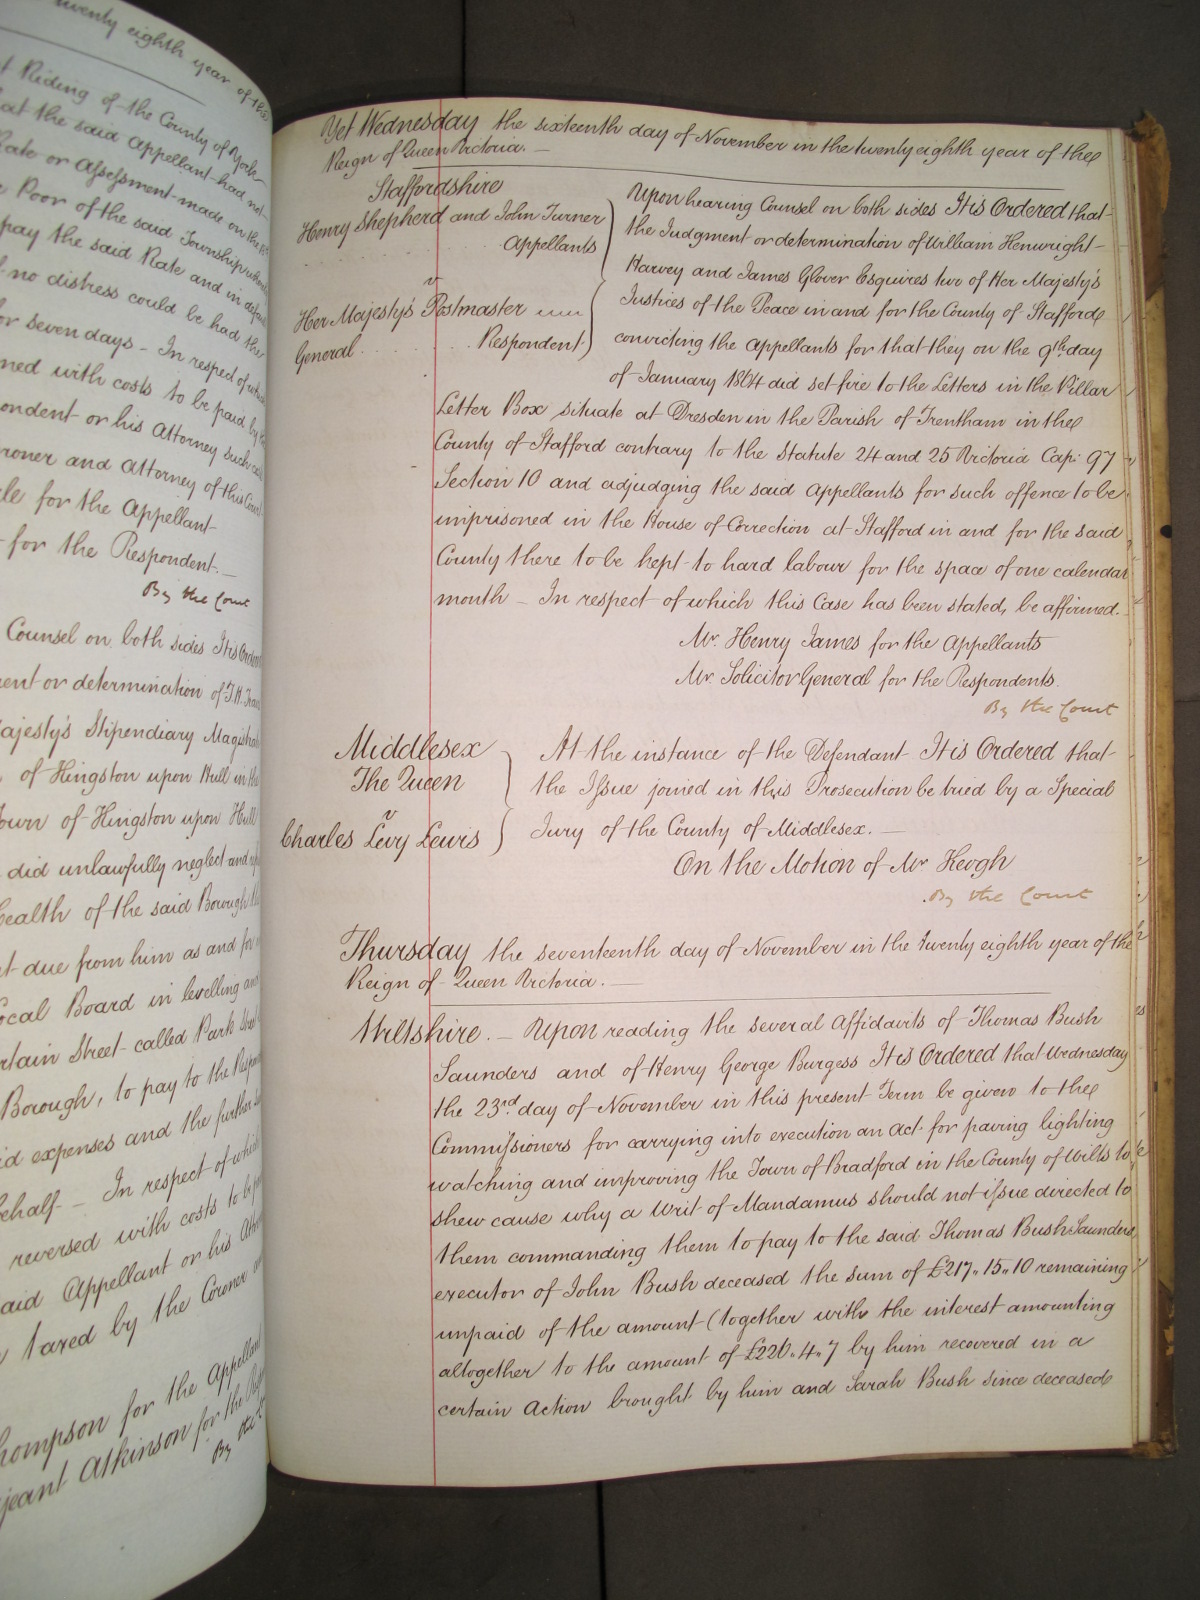 twenty eighth year of the
t Riding of the County of York
at the said Appellant had not
Rate or Assessment made on the
Poor of the said Township
pay the said Rate and in
no distress could be had
or seven days – In respect of
ned with costs to be paid by
ondent or his Attorney such
roner and Attorney of this Court
le for the Appellant
for the Respondent. –
By the Court
Counsel on both sides It is
ent or determination of T.H.
ajesty's Stipendiary
of Kingston upon Hull in
own of Kingston upon Hull
did unlawfully neglect and
ealth of the said Borough
t due from him as and for
ocal Board in levelling
rtain Street called Park
Borough, to pay to the
id expenses and the further
ehalf – In respect of which
reversed with costs to be
aid Appellant or his
taxed by the Coroner
hompson for the Appellant
jeant Atkinson for the
By the
Yet Wednesday the sixteenth day of November in the twenty eighth year of the
Reign of Queen Victoria. –
Staffordshire
Henry Shepherd and John Turner
Appellants
v
Her Majesty's Postmaster
General . . . . Respondent
Upon hearing Counsel on both sides It is Ordered that
the Judgment or determination of William Henwright
Harvey and James Glover Esquires two of Her Majesty's
Justices of the Peace in and for the County of Stafford
convicting the Appellants for that they on the 9th day
of January 1864 did set fire to the Letters in the Pillar
Letter Box situate at Dresden in the Parish of Trentham in the
County of Stafford contrary to the Statute 24 and 25 Victoria Cap: 97
Section 10 and adjudging the said Appellants for such offence to be
imprisoned in the House of Correction at Stafford in and for the said
County there to be kept to hard labour for the space of one calendar
month – In respect of which this Case has been stated, be affirmed.
Mr. Henry James for the Appellants
Mr. Solicitor General for the Respondents.
By the Court
Middlesex
The Queen
v
Charles Levy Lewis
At the instance of the Defendant It is Ordered that
the Issue joined in this Prosecution be tried by a Special
Jury of the County of Middlesex. –
On the Motion of Mr Keogh
By the Court
Thursday the seventeenth day of November in the twenty eighth year of the
Reign of Queen Victoria. –
Wiltshire. – Upon reading the several Affidavits of Thomas Bush
Saunders and of Henry George Burgess It is Ordered that Wednesday
the 23rd day of November in this present Term be given to the
Commissioners for carrying into execution an Act for paving lighting
watching and improving the Town of Bradford in the County of Wilts to
shew cause why a Writ of Mandamus should not issue directed to
them commanding them to pay to the said Thomas Bush Saunders,
executor of John Bush deceased the sum of £217.. 15.. 10 remaining
unpaid of the amount (together with the interest amounting
altogether to the amount of £226.. 4.. 7 by him recovered in a
certain Action brought by him and Sarah Bush since deceased